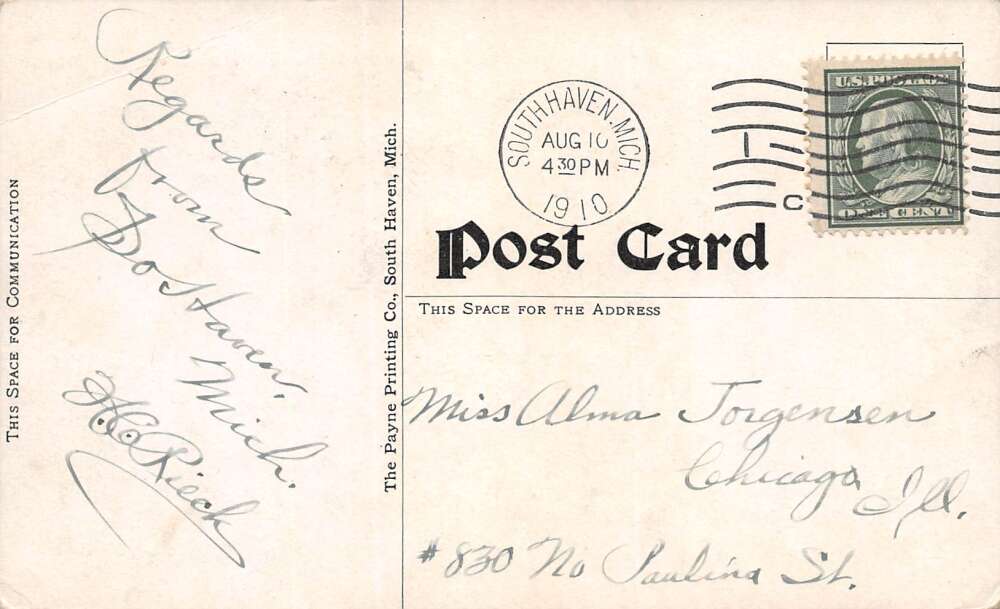 THIS SPACE FOR COMMUNICATION
Regards
from
So Haven.
Mich.
H.C. Rieck
The Payne Printing Co., South Haven, Mich.
SOUTH HAVEN. MICH.
AUG 10
4 30 PM
1910
1
C
U.S. POSTAGE
ONE CENT
Post Card
THIS SPACE FOR THE ADDRESS
Miss Alma Jorgensen
Chicago
Ill.
#830 No Paulina St.